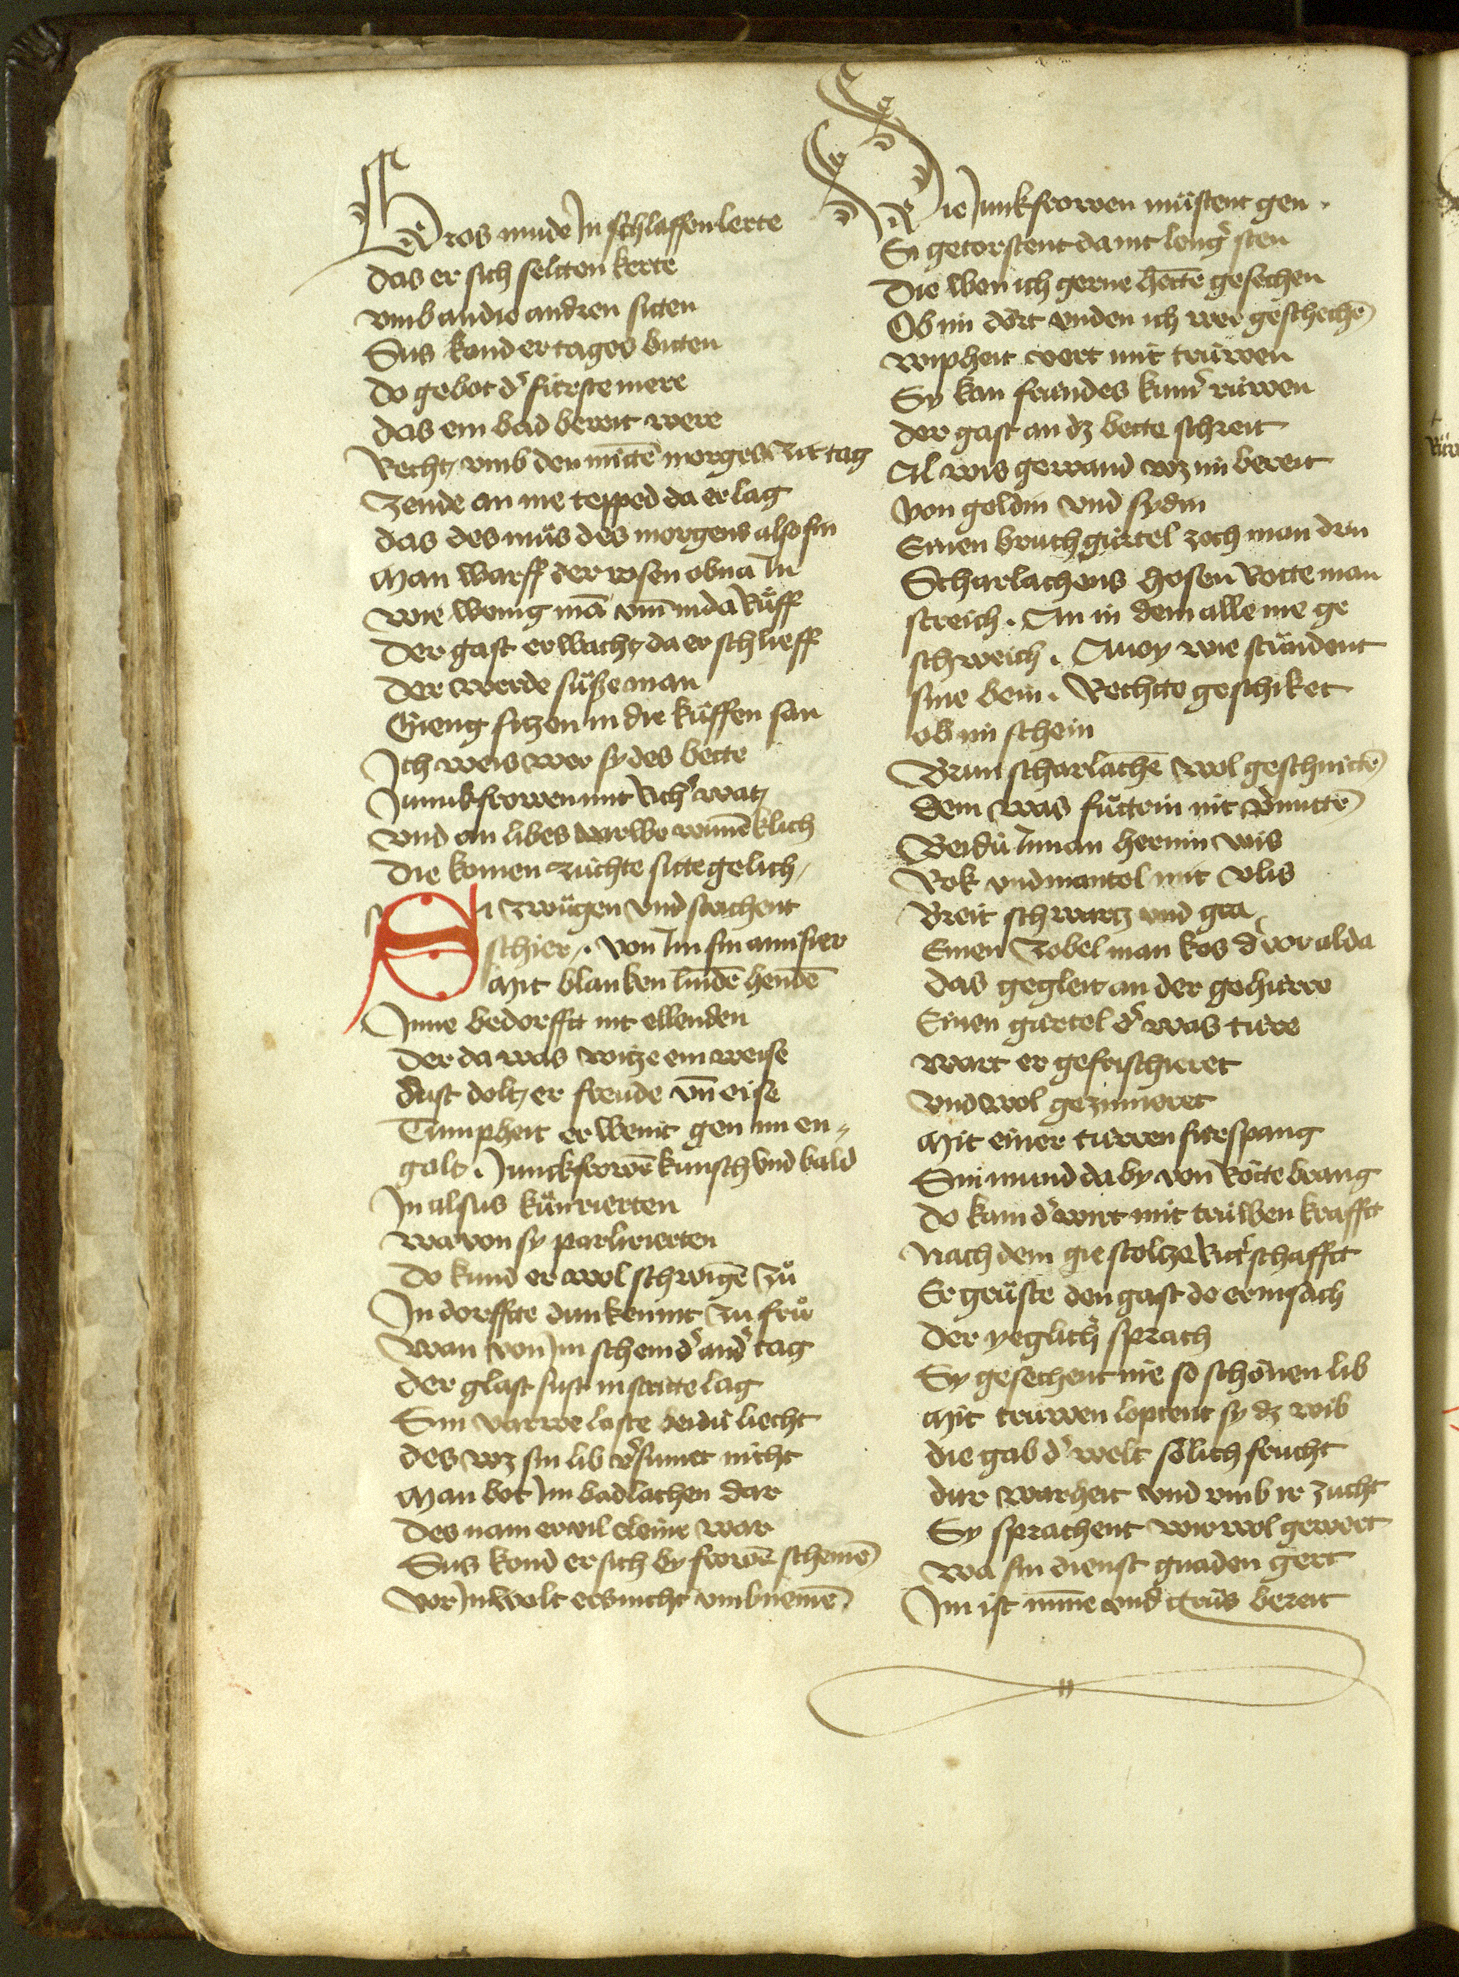 Gros mude In schlaffen lerte
das er sich seltten kerte
vmb an die andren sitten
Sus kond er tages bitten
do gebot d' fürste mere
das ein bad bereit were
Recht vmb den mittē morges zit tag
Zende an me tepped da er lag
das des muͤs des morgens also sin
Man warff der rosen obna In
wie wenig mā vm̄ in da Ruͤff
Der gast erwacht da er schlieff
Der werde suͤsse man
Gieng sitzen in die kuͤffen san
Ich weis wer sy des bette
Junnkfrowen mit Rich' wat
vnd an libes varwe minēklich
Die komen zuchte sitte gelich
Si zwuͤgen vnd strichent
schier . von Im sin amisier
Mit blanken lindē hendē
Inne bedorfft nit ellenden
Der da was witze ein weise
Sust dolt er freude vn̄ eise
Tumpheit er wenit gen im en⸗
galt . Junckfrowē kunsch vnd bald
In alsus kunrierten
wa von sy parlierten
do kund er wol schwigē zuͦ
In dorfftte dunken nit zu fruͦ
wan von Im schein d' and' tag
der glast sust in stritte lag
Sin varwe laste beidu liecht
des wz sin lib v'sumet nicht
Man bot Im badlachen dar
des nam er vil cleine war
Sus kond er sich by frowē schemē
vor In wolt ers nicht vmb nemē
Die Junkfrowen muͤstent gen .
Si getorstent da nit leng' sten
Die wen ich gerne hettē gesechen
Ob im dört vnden ich wer geschechē
wipheit vert mit trüwen
Sy kan frundes kum' rüwen
der gast an dz bette schreit
Al wis gewand wz im bereit
von goldin vnd sydin
Einen bruchgürtel zoch man drin
Scharlachens hosen Rotte man
streich . An in dem allen nie ge
schweich . Auoy wie stuͤndent
sine bein . Rechtte geschiket
ob im schein
Brun scharlachē wol geschnittē
dem was fuͤttrin nit v'mittē
Beidü Innan hermin wis
Rok vnd mantel mit vlis
Breit schwartz vnd gra
Einen zobel man kos d' vor alda
das gegleit an der gehürre
Einen gürtel d' was türe
wart er gefrischieret
vnd wol gezimieret
Mit einer türren fürspang
Sin mund da by von Rötte brang
do kam d' wirt mit trüwen krafft
nach dem gie stoltze Rit'schafft
Er gruͤste den gast do er in sach
Der yeglich' sprach
Sy gesechent nie so schönen lib
Mit trüwen loptent sy dz wib
die gab d' welt sölich frucht
dur warheit vnd vmb ir zucht
Sy sprachent wir wol gewert
wa sin dienst gnaden gert
Im ist minne vnd gruͤs bereit